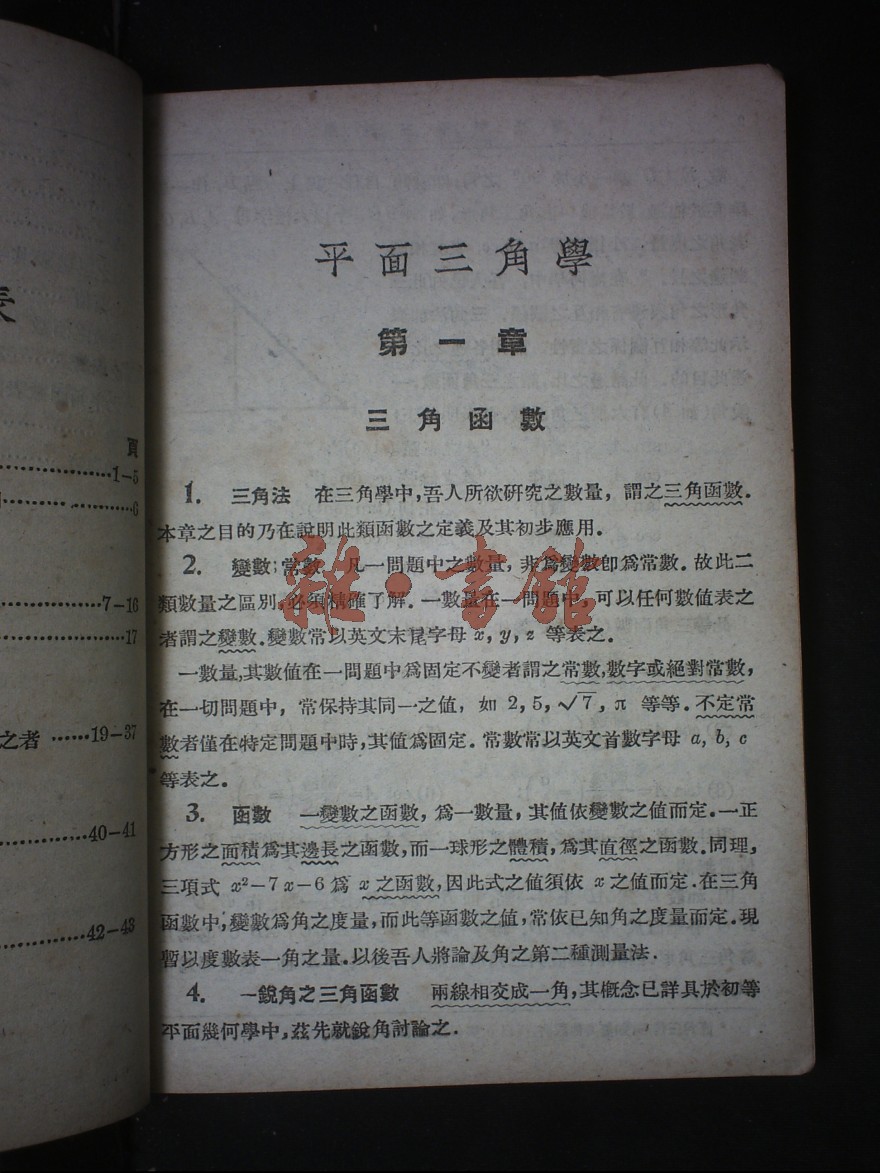 表
頁
1–5
6
7–16
17
之者 ……19–37
40–41
42–43
平面三角學
第一章
三角函數
1. 三角法 在三角學中,吾人所欲研究之數量,謂之三角函數.
本章之目的乃在說明此類函數之定義及其初步應用.
2. 變數;常數 凡一問題中之數量,非爲變數卽爲常數.故此二
類數量之區別,必須精確了解.一數量在一問題中,可以任何數值表之
者謂之變數.變數常以英文末尾字母 x, y, z 等表之.
一數量,其數值在一問題中爲固定不變者謂之常數,數字或絕對常數,
在一切問題中,常保持其同一之值,如 2, 5, √7, π 等等.不定常
數者僅在特定問題中時,其值爲固定.常數常以英文首數字母 a, b, c
等表之.
3. 函數 一變數之函數,爲一數量,其值依變數之值而定.一正
方形之面積爲其邊長之函數,而一球形之體積,爲其直徑之函數.同理,
三項式 x²−7x−6 爲 x 之函數,因此式之值須依 x 之值而定.在三角
函數中,變數爲角之度量,而此等函數之值,常依已知角之度量而定.現
暫以度數表一角之量.以後吾人將論及角之第二種測量法.
4. 一銳角之三角函數 兩線相交成一角,其概念已詳具於初等
平面幾何學中,茲先就銳角討論之.
雜·書館